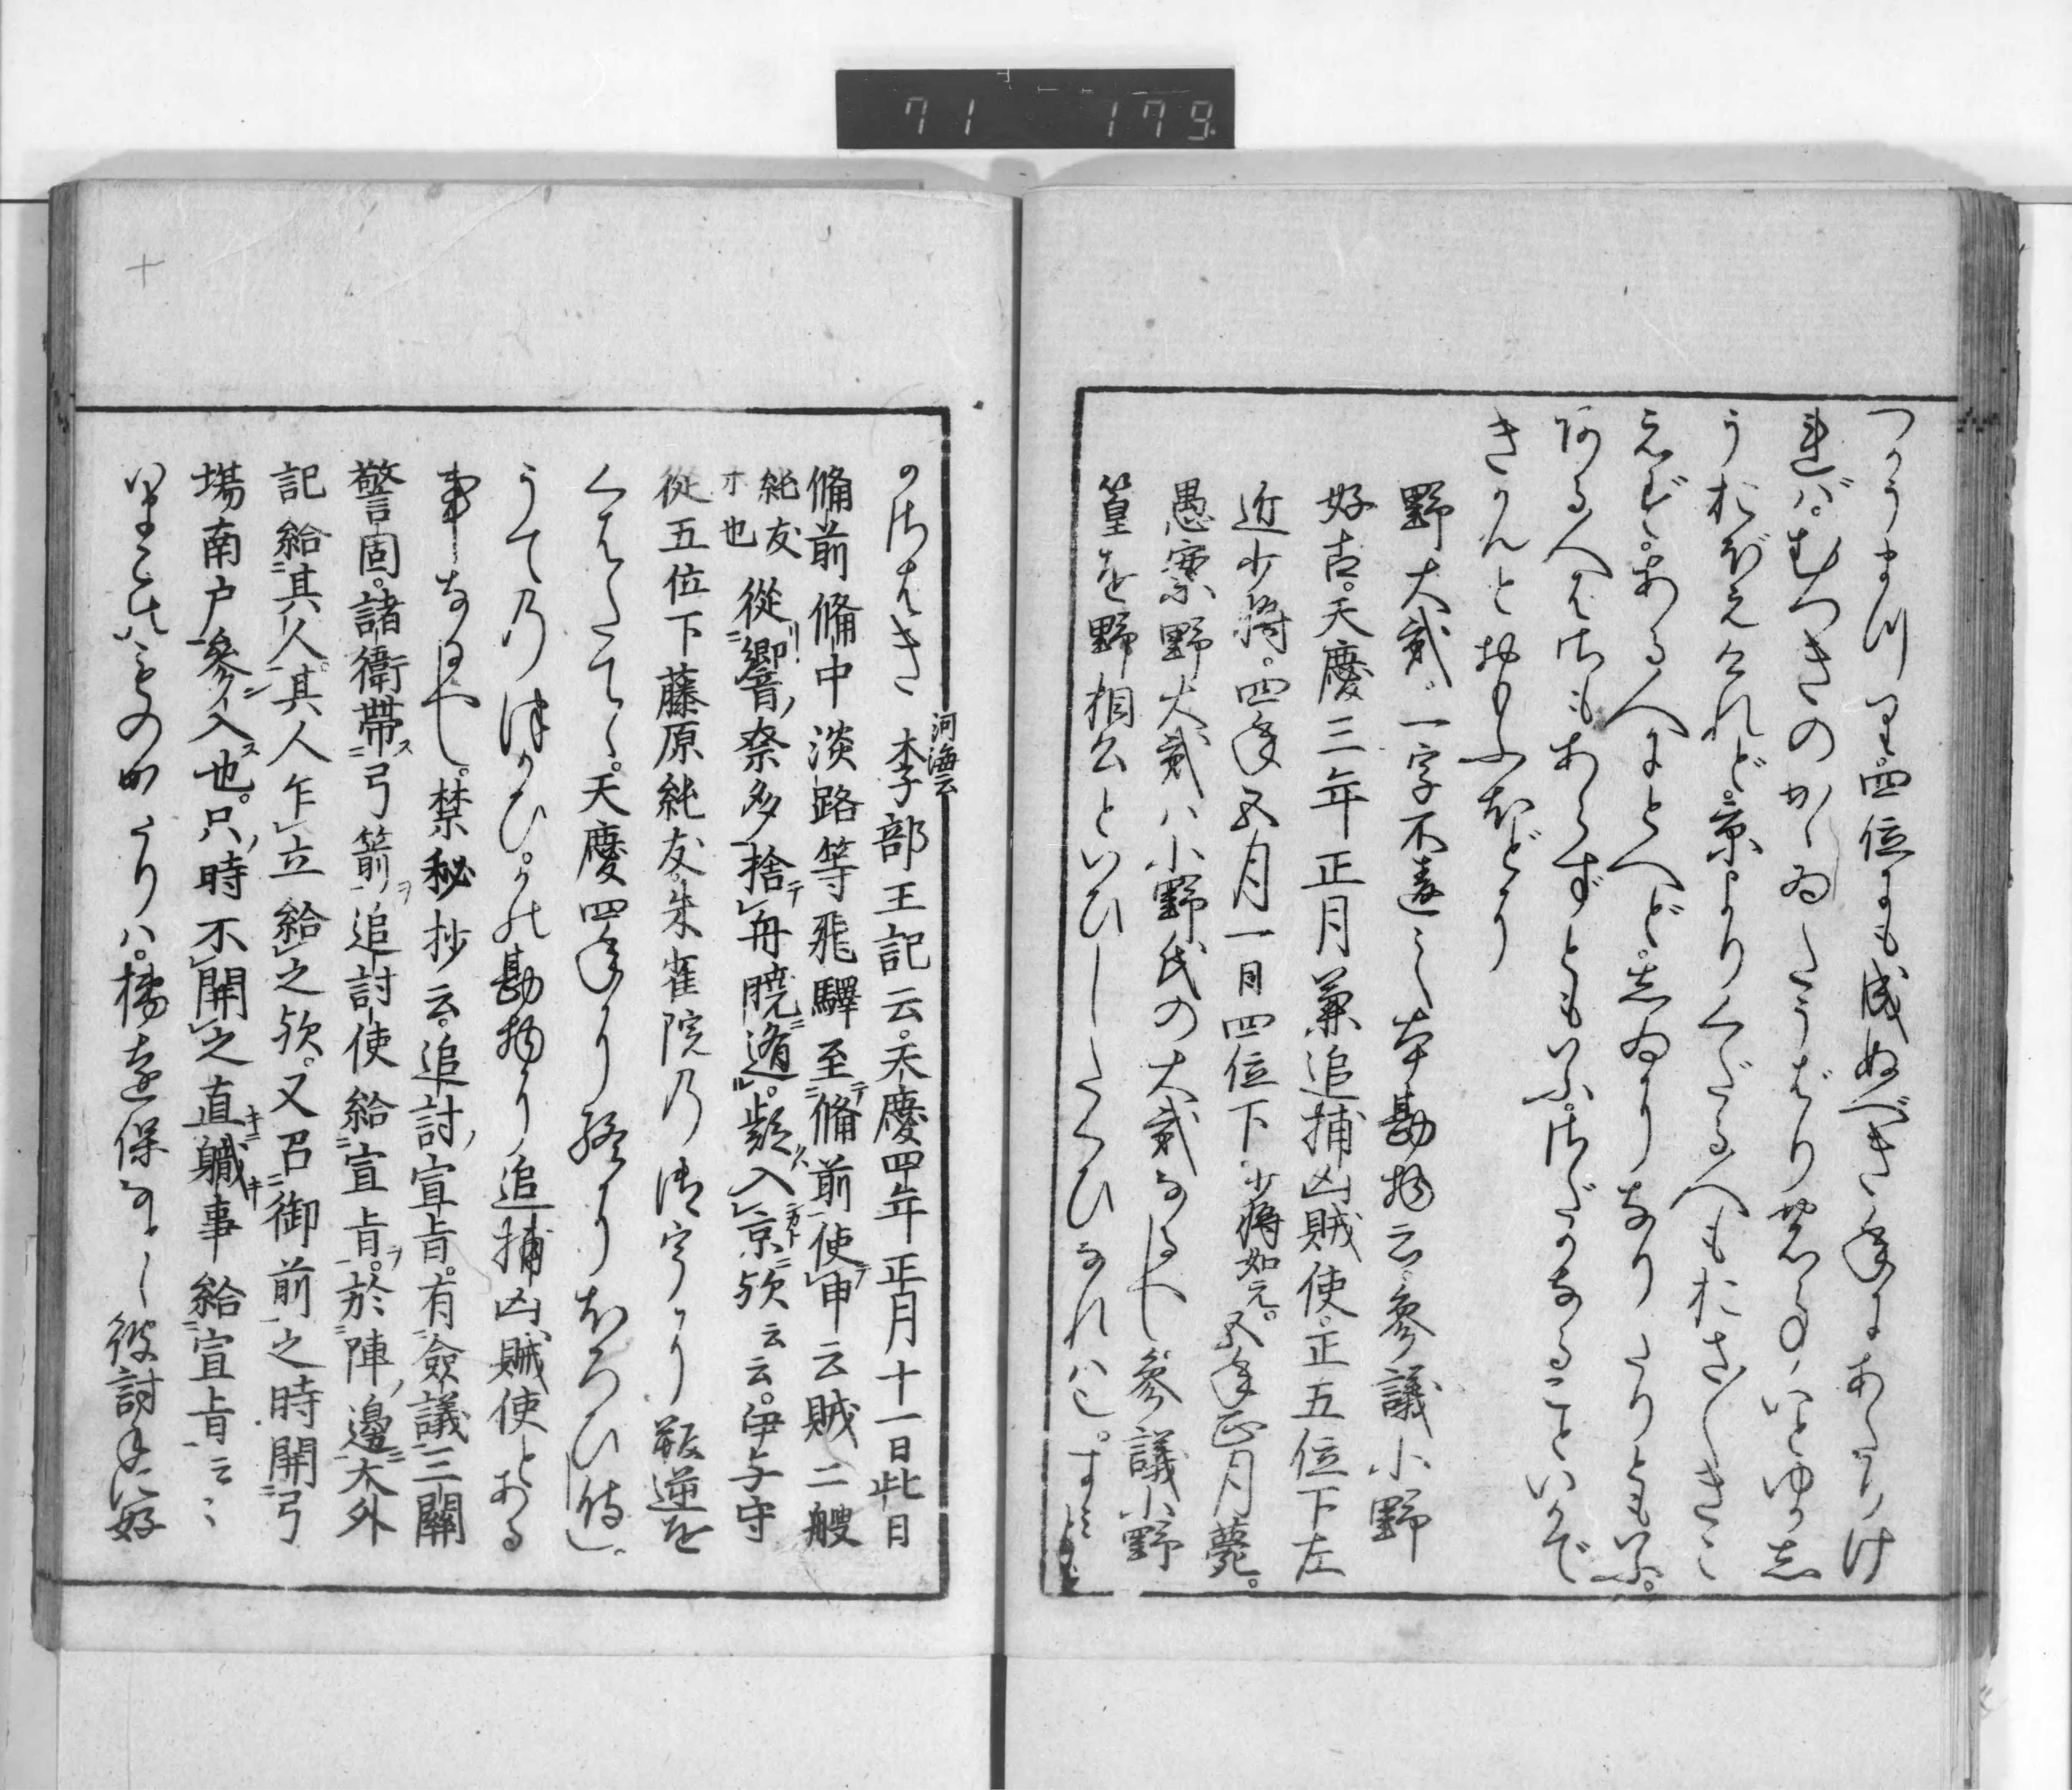 71 179
つかうまつりて四位にも成ぬべき年にあたりけ
れば。むつきのかゝゐたうばりの事いとゆかし
うおぼえけれど京よりくだる人もおさ〳〵きこ
えず。ある人にとへど。しゐになりたりともいふ。
ある人はさもあらずともいふ。さだかなることいかで
きかんとおもふほどに
野大貳 一字不違之 本勘物云参議小野
好古。天慶三年正月兼追捕凶賊使。正五位下左
近少将。四年五月一日四位下。少将如元。五年正月薨。
愚案野大貳ハ小野氏の大貳なるべし参議小野
篁を野相公といひしたくひなれハ也。すみ
のさはき 河海云 李部王記云。天慶四年正月十一日此日
備前備中淡路等飛驛至備前使申云賊二艘
純友ホ也 從響奈多捨舟曉遁。疑入京欤云云。伊与守
從五位下藤原純友朱雀院乃御宇に叛逆を
くはたてゝ。天慶四年に終にほろひ侍し
うての使つかひ。かの勘物に追捕凶賊使とある
事なるへし。禁秘抄云。追討宣旨。有僉議三關
警固。諸衛帶弓箭追討使給宣旨。於陣邊大外
記給其人。其人乍立給之欤。又召御前之時開弓
場南戸参入也。只時不開之直職事給宣旨云々